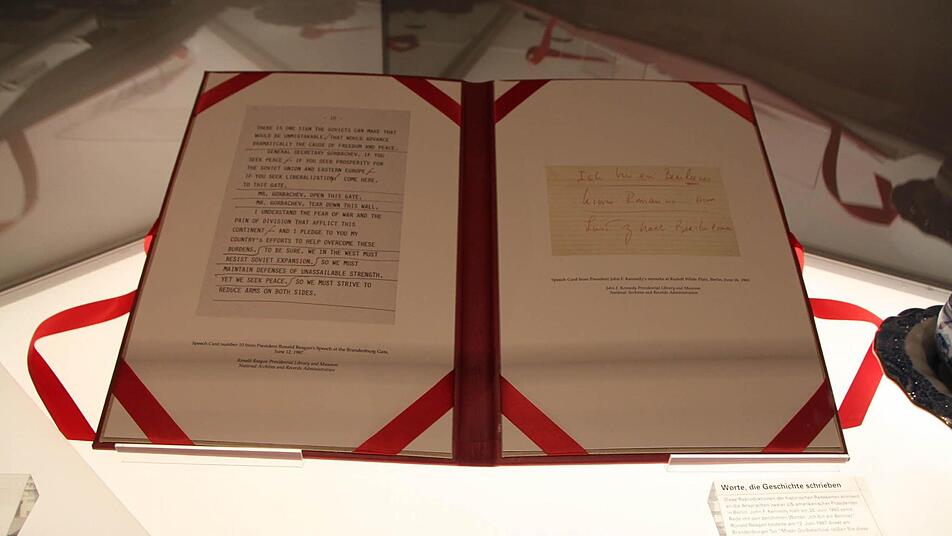 - 10 -
THERE IS ONE SIGN THE SOVIETS CAN MAKE THAT
WOULD BE UNMISTAKABLE, THAT WOULD ADVANCE
DRAMATICALLY THE CAUSE OF FREEDOM AND PEACE.
GENERAL SECRETARY GORBACHEV, IF YOU
SEEK PEACE -- IF YOU SEEK PROSPERITY FOR
THE SOVIET UNION AND EASTERN EUROPE --
IF YOU SEEK LIBERALIZATION, COME HERE,
TO THIS GATE.
MR. GORBACHEV, OPEN THIS GATE.
MR. GORBACHEV, TEAR DOWN THIS WALL.
I UNDERSTAND THE FEAR OF WAR AND THE
PAIN OF DIVISION THAT AFFLICT THIS
CONTINENT -- AND I PLEDGE TO YOU MY
COUNTRY'S EFFORTS TO HELP OVERCOME THESE
BURDENS. TO BE SURE, WE IN THE WEST MUST
RESIST SOVIET EXPANSION. SO WE MUST
MAINTAIN DEFENSES OF UNASSAILABLE STRENGTH.
YET WE SEEK PEACE. SO WE MUST STRIVE TO
REDUCE ARMS ON BOTH SIDES.
Speech Card number 10 from President Ronald Reagan's Speech at the Brandenburg Gate,
June 12, 1987
Ronald Reagan Presidential Library and Museum
National Archives and Records Administration
Ish bin ein Bearleener
kiwis Romanus sum
Lust z nach Bearlin
Speech Card from President John F. Kennedy's remarks at Rudolf Wilde Platz, Berlin, June 26, 1963
John F. Kennedy Presidential Library and Museum
National Archives and Records Administration
Worte, die Geschichte schrieben
Diese Reproduktionen der historischen Redekarten erinnern
an die Ansprachen zweier US-amerikanischer Präsidenten
in Berlin. John F. Kennedy hielt am 26. Juni 1963 seine
Rede mit den berühmten Worten „Ich bin ein Berliner".
Ronald Reagan forderte am 12. Juni 1987 direkt am
Brandenburger Tor "Mister Gorbatschow, reißen Sie diese